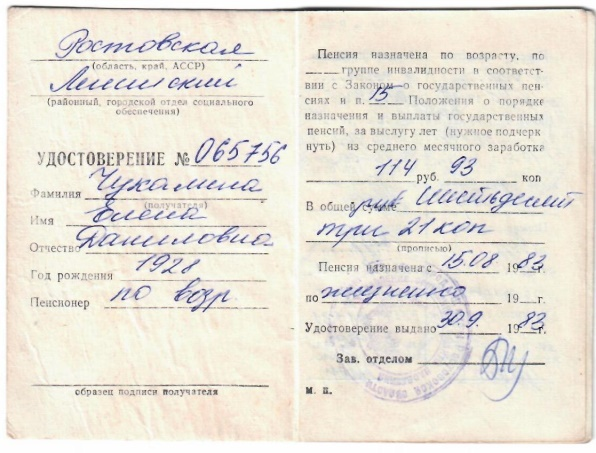 Ростовская
(область, край, АССР)
Ленинский
(районный, городской отдел социального
обеспечения)
УДОСТОВЕРЕНИЕ № 065756
Фамилия Чукалина
(получателя)
Имя Елена
Отчество Даниловна
Год рождения 1928
Пенсионер по возр
образец подписи получателя
Пенсия назначена по возрасту, по
группе инвалидности в соответст-
вии с Законом о государственных пен-
сиях и п. 15 Положения о порядке
назначения и выплаты государственных
пенсий, за выслугу лет (нужное подчерк
нуть) из среднего месячного заработка
114 руб. 93 коп
В общей сумме Шестьдесят
три 21 коп
(прописью)
Пенсия назначена с 15.08 1983 г.
по жизненно 19 г.
Удостоверение выдано 30.9. 1983 г.
Зав. отделом
М. П.